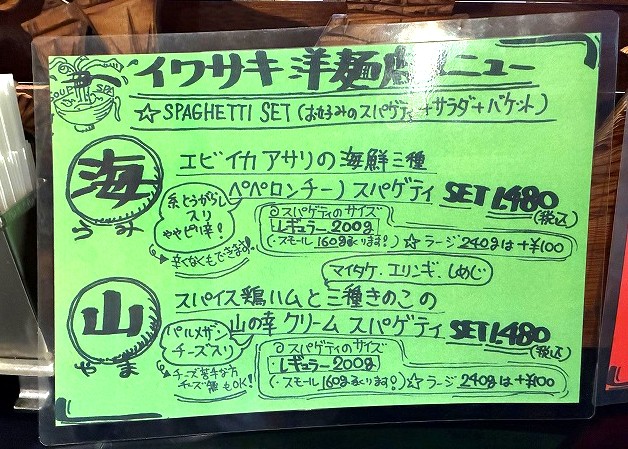 イワサキ 洋麺店 メニュー
☆SPAGHETTI SET (お好みのスパゲティ+サラダ+バケット)
海
うみ
エビイカアサリの海鮮三種
ペペロンチーノ スパゲティ SET 1,480
(税込)
糸とうがらし
入り
ややピリ辛!
辛くなくもできます!
◎スパゲティのサイズ
レギュラー 200g
・スモール 160gあります!) ☆ラージ 240gは+¥100
マイタケ、エリンギ、しめじ
山
やま
スパイス鶏ハムと三種きのこの
山の幸 クリーム スパゲティ SET 1,480
(税込)
パルメザン
チーズ入り
チーズ苦手な方
チーズ無もOK!
◎スパゲティのサイズ
・レギュラー 200g
・スモール 160gあります!) ☆ラージ 240gは+¥100